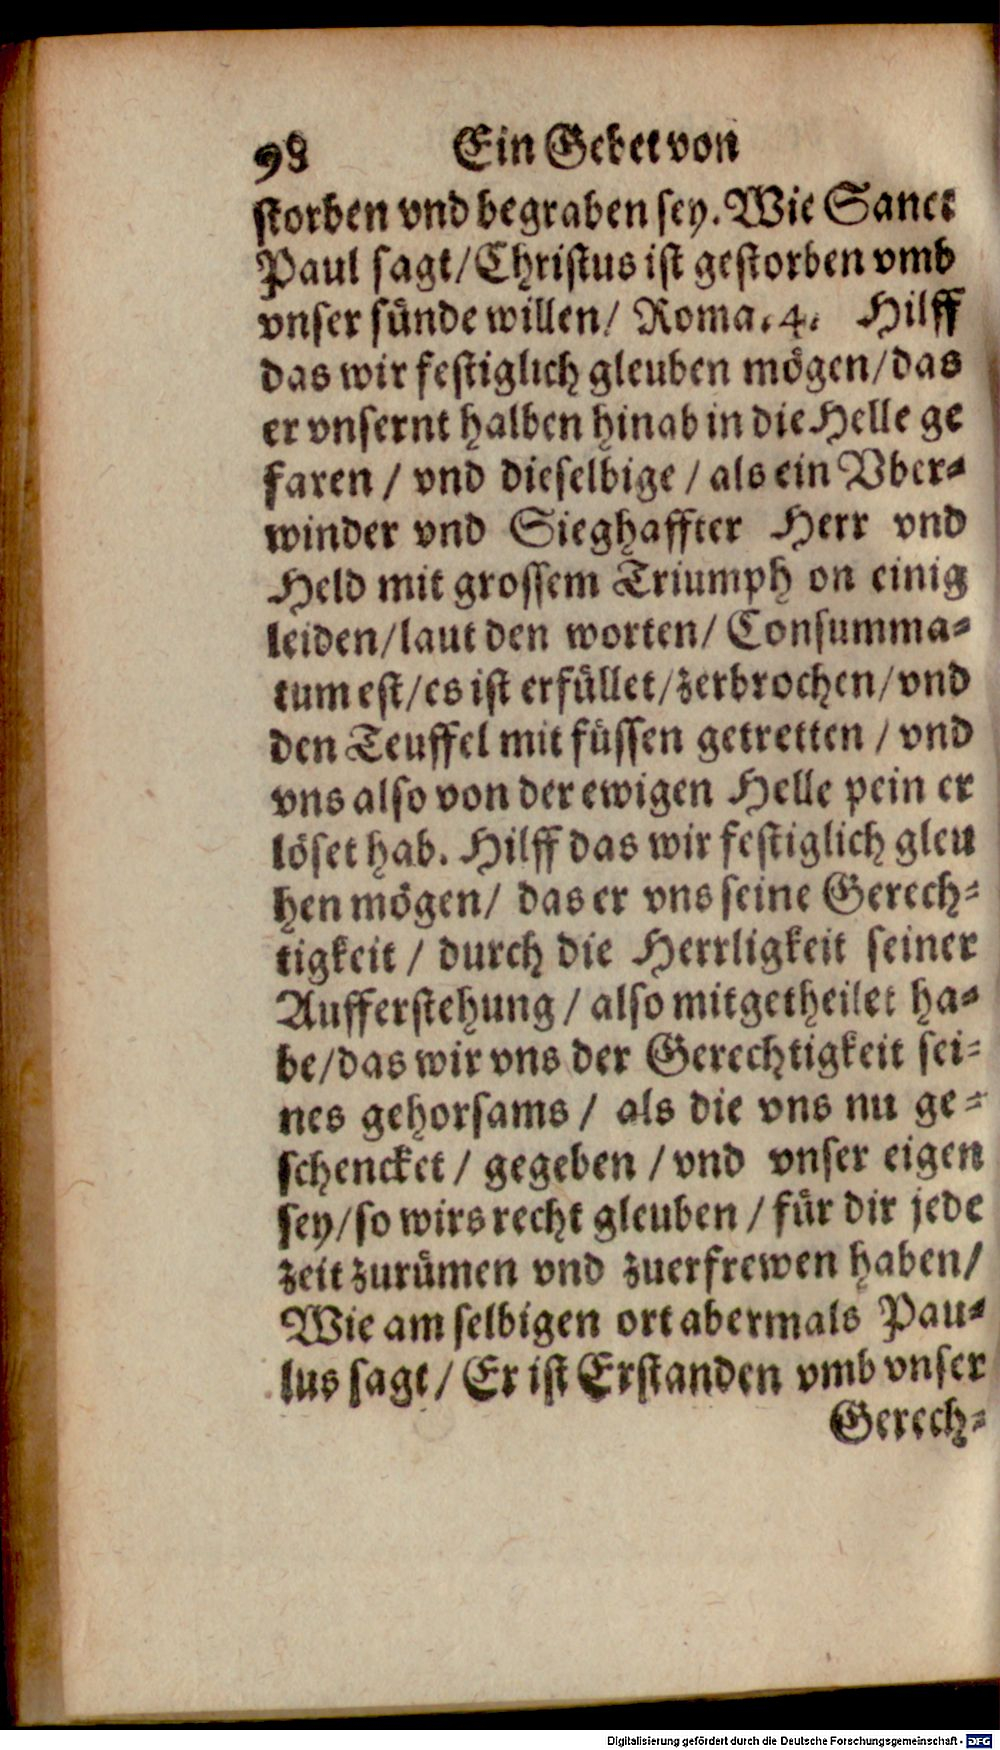 98 Ein Gebet von
storben vnd begraben sey. Wie Sanct
Paul sagt/Christus ist gestorben vmb
vnser sünde willen/ Roma. 4. Hilff
das wir festiglich gleuben mögen/das
er vnsernt halben hinab in die Helle ge
faren / vnd dieselbige / als ein Vber-
winder vnd Sieghaffter Herr vnd
Held mit grossem Triumph on einig
leiden/laut den worten/ Consumma-
tum est/es ist erfüllet/zerbrochen/vnd
den Teuffel mit füssen getretten / vnd
vns also von der ewigen Helle pein er
löset hab. Hilff das wir festiglich gleu
hen mögen/ das er vns seine Gerech-
tigkeit / durch die Herrligkeit seiner
Aufferstehung / also mitgetheilet ha-
be/das wir vns der Gerechtigkeit sei-
nes gehorsams / als die vns nu ge-
schencket / gegeben / vnd vnser eigen
sey/so wirs recht gleuben / für dir jede
zeit zurümen vnd zuerfrewen haben/
Wie am selbigen ort abermals Pau-
lus sagt / Er ist Erstanden vmb vnser
Gerech-
Digitalisierung gefördert durch die Deutsche Forschungsgemeinschaft - DFG